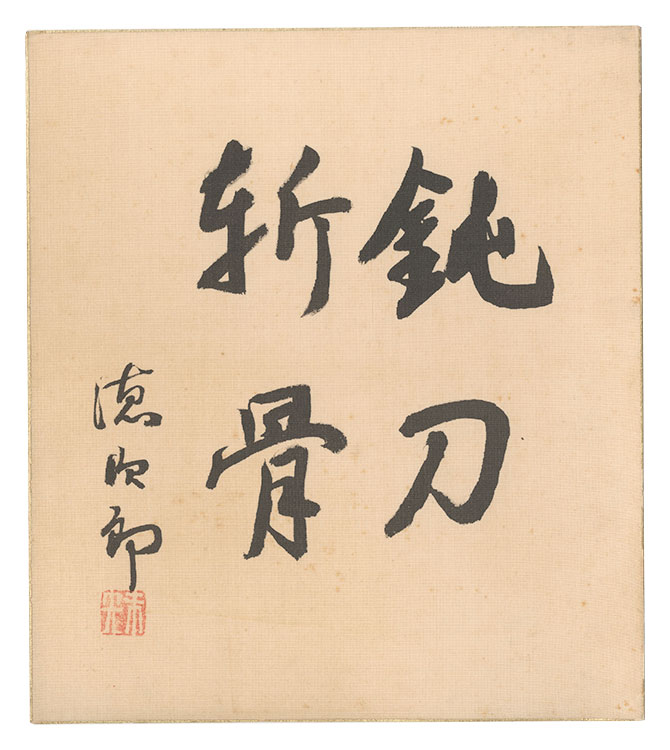 鈍刀
斬骨
徳次郎